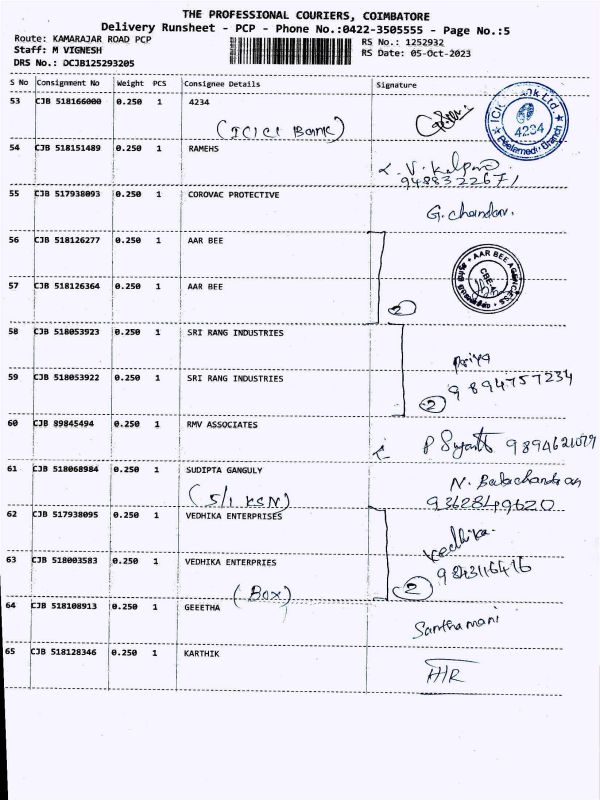 THE PROFESSIONAL COURIERS, COIMBATORE
Delivery Runsheet - PCP - Phone No.:0422-3505555 - Page No.:5
Route: KAMARAJAR ROAD PCP
RS No.: 1252932
Staff: M VIGNESH
RS Date: 05-Oct-2023
DRS No.: DCJB125293205
S No Consignment No Weight PCS Consignee Details Signature
53 CJB 518166000 0.250 1 4234
(ICICI Bank)
4234
Peelamedu Branch
54 CJB 518151489 0.250 1 RAMEHS
V. Kalpana
9488322671
55 CJB 517938093 0.250 1 COROVAC PROTECTIVE
G. Chandan.
56 CJB 518126277 0.250 1 AAR BEE
AAR BEE AGENCIES
57 CJB 518126364 0.250 1 AAR BEE
2
58 CJB 518053923 0.250 1 SRI RANG INDUSTRIES
Priya
59 CJB 518053922 0.250 1 SRI RANG INDUSTRIES
9894757234
2
60 CJB 89845494 0.250 1 RMV ASSOCIATES
61 CJB 518068984 0.250 1 SUDIPTA GANGULY
N. Balachandran
(S/I KSN)
9362849620
62 CJB 517938095 0.250 1 VEDHIKA ENTERPRISES
Vedhika.
63 CJB 518003583 0.250 1 VEDHIKA ENTERPRIES
9843116416
(Box)
2
64 CJB 518108913 0.250 1 GEEETHA
Santhamani
65 CJB 518128346 0.250 1 KARTHIK